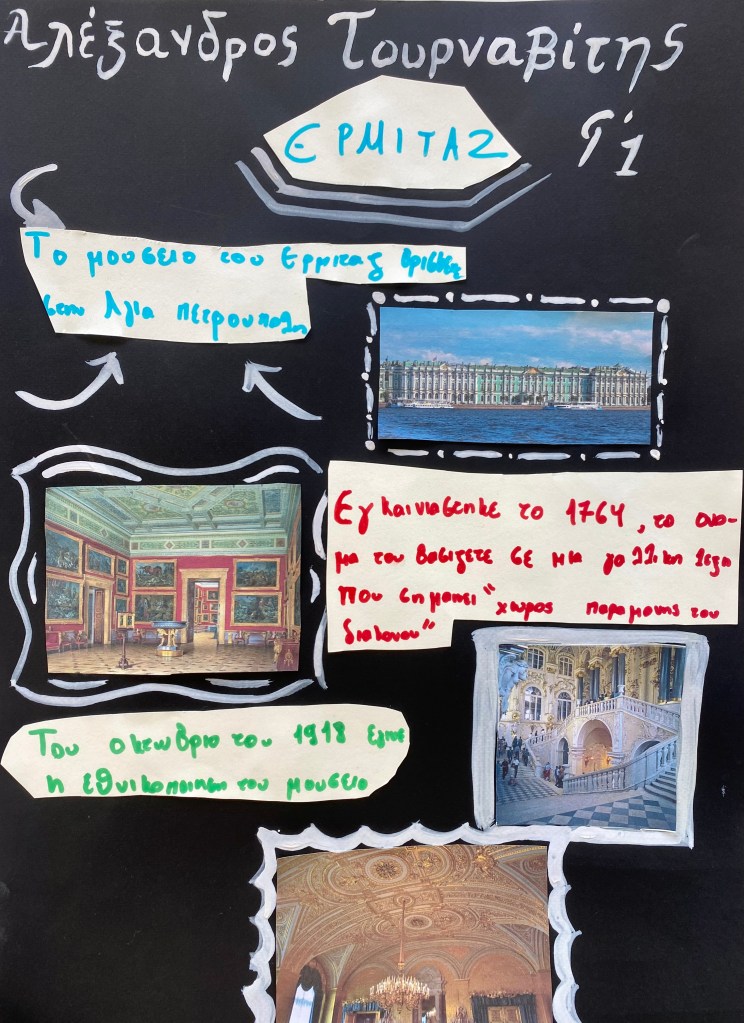 Αλέξανδρος Τουρναβίτης
Γ'1
ΕΡΜΙΤΑΖ
Το μουσειο του Ερμιταζ βρισκετε
στην Αγια πετρουπολη
Εγκαινιασθηκε το 1764, το ονο-
μα του βασιζετε σε μια γαλλικη λεξη
που σημαινει "χωρος παραμονης του
διακονου"
Του οκτωβριο του 1918 εγινε
η εθνικοποιηση του μουσειο